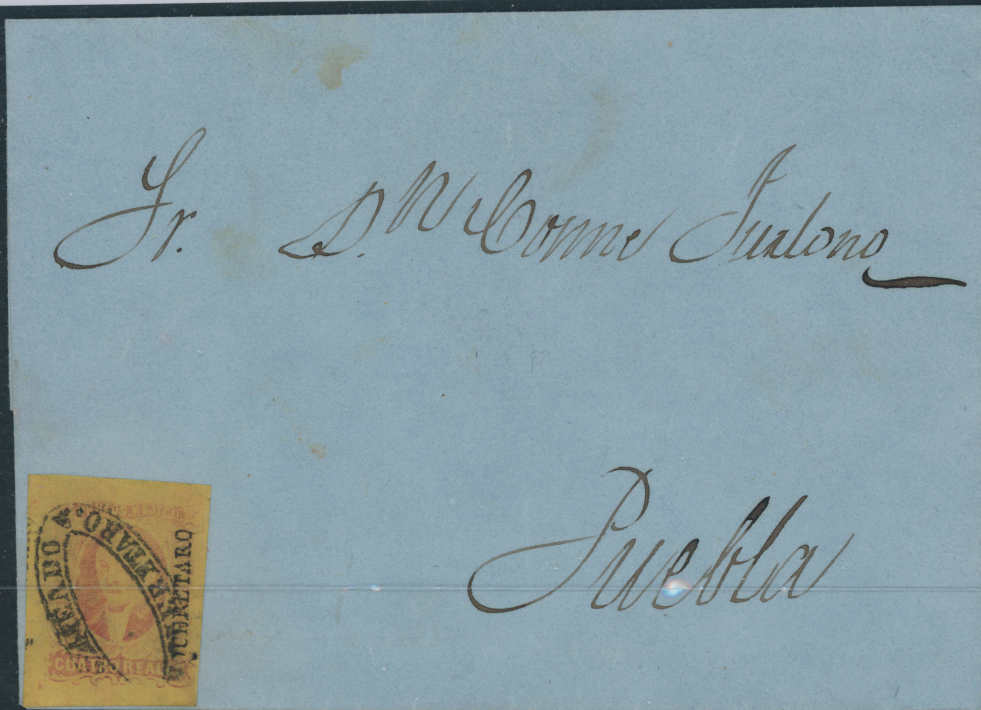 Sr. Dn Cosme Furlong
Puebla
QUERETARO
CUATRO REALES